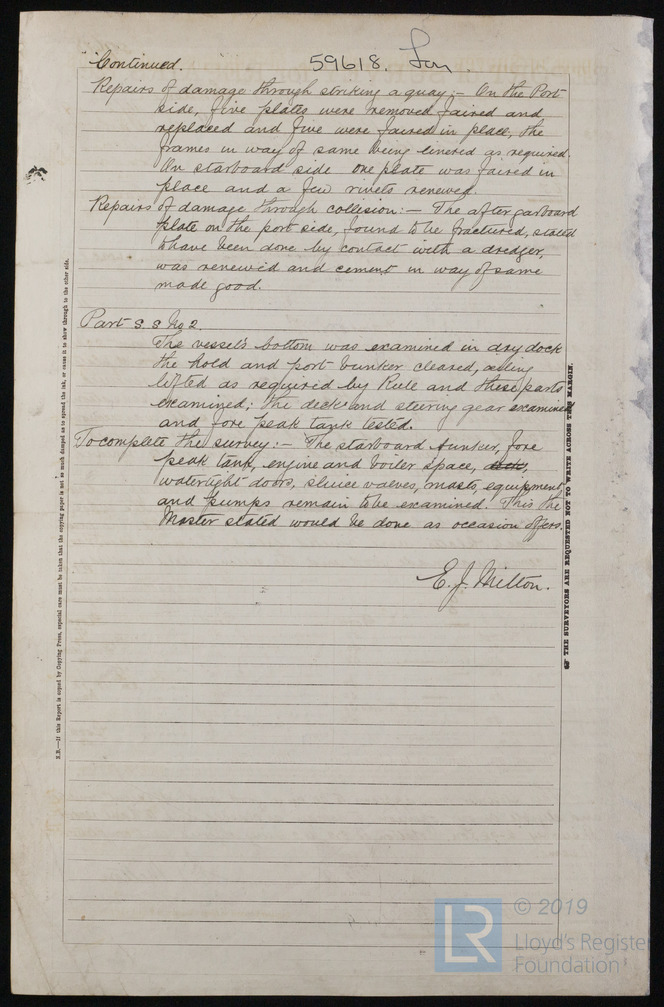 Continued.
59618. Lon
Repairs of damage through striking a quay:- On the Port
side, five plates were removed faired and
replaced and five were faired in place, the
frames in way of same being linered as required.
On starboard side one plate was faired in
place and a few rivets renewed.
Repairs of damage through collision:- The after garboard
plate on the port side, found to be fractured, stated
to have been done by contact with a dredger,
was renewed and cement in way of same
made good.
Part S.S No 2.
The vessel's bottom was examined in dry dock
the hold and port bunker cleared, ceiling
lifted as required by Rule and these parts
examined; the decks and steering gear examined
and fore peak tank tested.
To complete the survey:- The starboard bunker, fore
peak tank, engine and boiler space,
watertight doors, sluice valves, masts, equipment,
and pumps remain to be examined. This the
Master stated would be done as occasion offers.
E. J. Milton.
N.B.—If this Report is copied by Copying Press, especial care must be taken that the copying paper is not so much damped as to spread the ink, or cause it to show through to the other side.
THE SURVEYORS ARE REQUESTED NOT TO WRITE ACROSS THIS MARGIN.
LR
© 2019
Lloyd's Register
Foundation